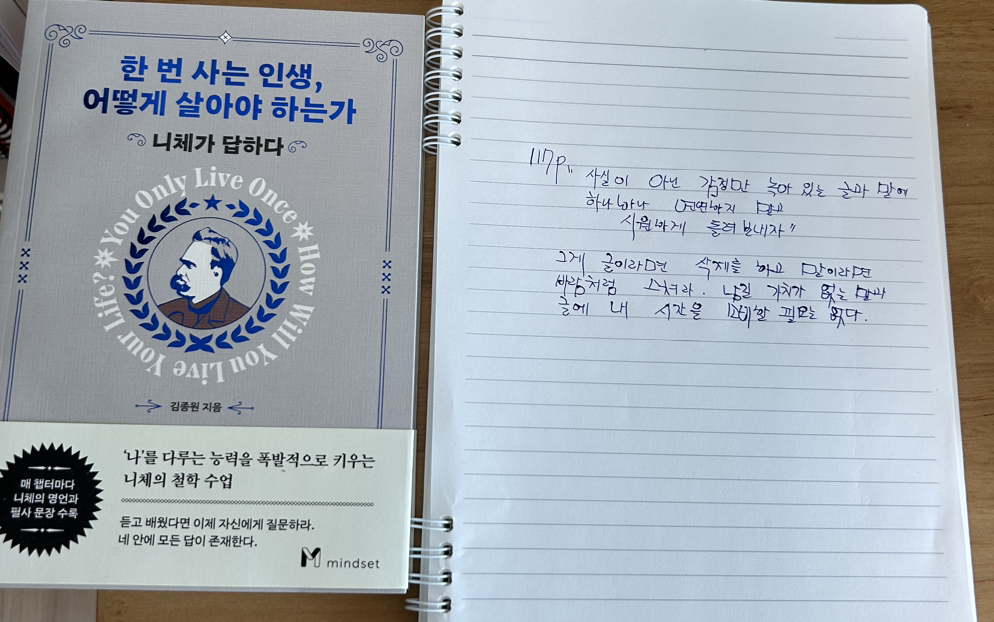 한 번 사는 인생,
어떻게 살아야 하는가
니체가 답하다
You Only Live Once? How Will You Live Your Life?
김종원 지음
'나'를 다루는 능력을 폭발적으로 키우는
니체의 철학 수업
매 챕터마다
니체의 명언과
필사 문장 수록
듣고 배웠다면 이제 자신에게 질문하라.
네 안에 모든 답이 존재한다.
mindset
117p. "사실이 아닌 감정만 녹아 있는 글과 말에
하나하나 연연하지 말고
시원하게 흘려 보내자"
그게 글이라면 삭제를 하고 말이라면
바람처럼 스쳐라. 남길 가치가 없는 말과
글에 내 시간을 소비할 필요는 없다.